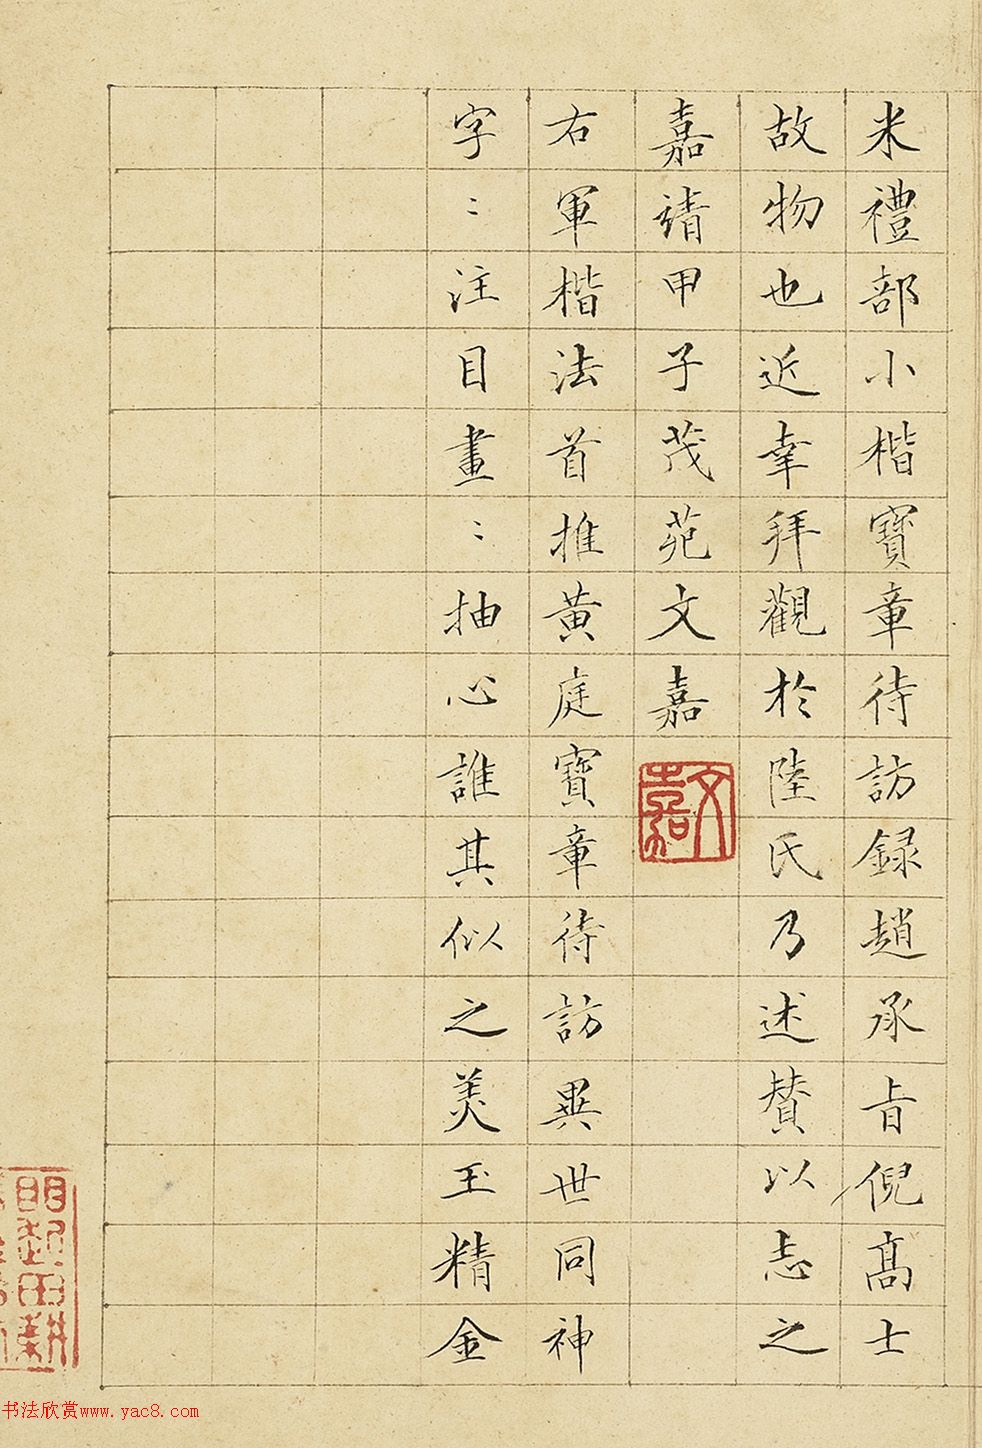 米禮部小楷寶章待訪録趙承旨倪髙士
故物也近幸拜觀於陸氏乃述贊以志之
嘉靖甲子茂苑文嘉
文嘉
右軍楷法首推黄庭寶章待訪異世同神
字〻注目畫〻抽心誰其似之美玉精金
书法欣赏www.yac8.com